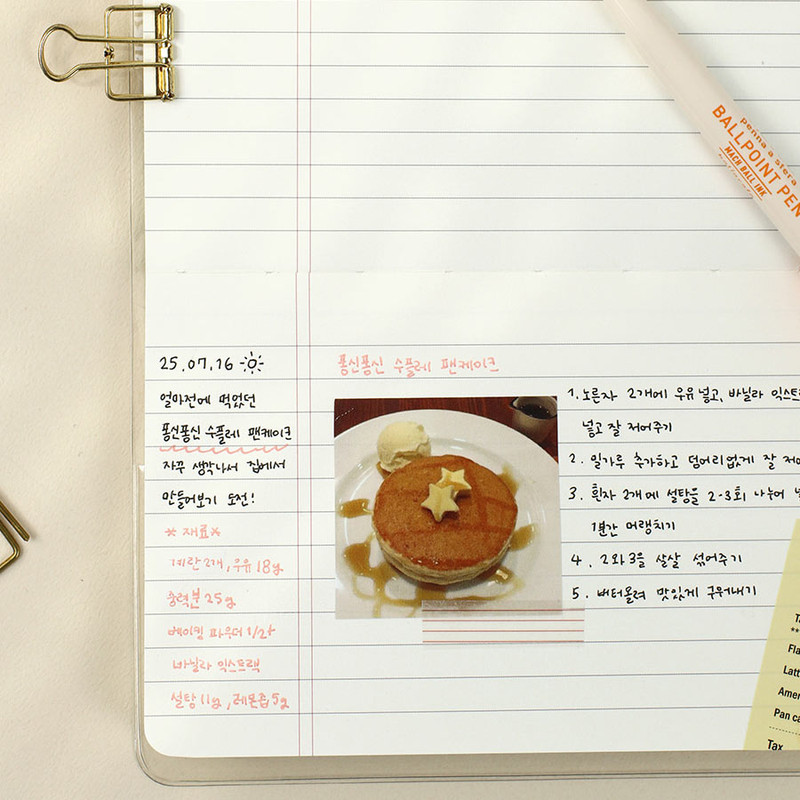 penna a sfera
BALLPOINT PEN
MACH BALL INK
25.07.16
얼마전에 먹었던
퐁신퐁신 수플레 팬케이크
자꾸 생각나서 집에서
만들어보기 도전!
* 재료 *
계란 2개, 우유 18g
중력분 25g
베이킹 파우더 1/2t
바닐라 익스트랙
설탕 11g, 레몬즙 5g
퐁신퐁신 수플레 팬케이크
1. 노른자 2개에 우유 넣고, 바닐라 익스트
넣고 잘 저어주기
2. 밀가루 추가하고 덩어리없게 잘 저어
3. 흰자 2개에 설탕을 2-3회 나누어
1분간 머랭치기
4. 2와 3을 살살 섞어주기
5. 버터올려 맛있게 구워내기
Ta
**
Fla
Latt
Amer
Pan ca
Tax